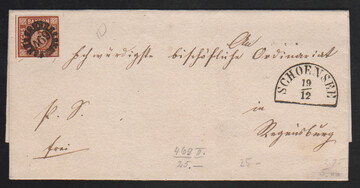 An
hochwürdigste bischöfliche Ordinariat
SCHOENSEE
19
12
P. S.
in
Regensburg
frei
468 II.
25.-
25.-